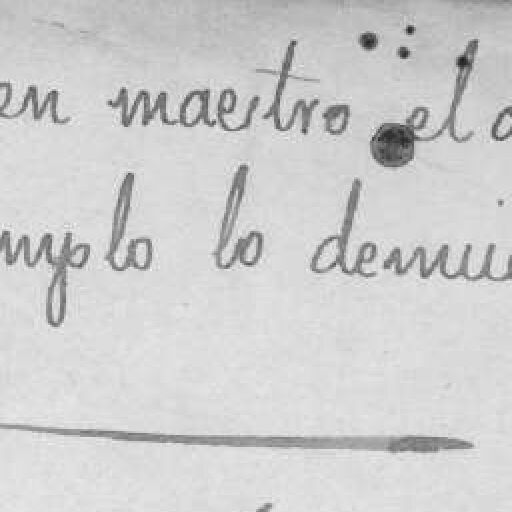 en maestro el
mplo lo demui